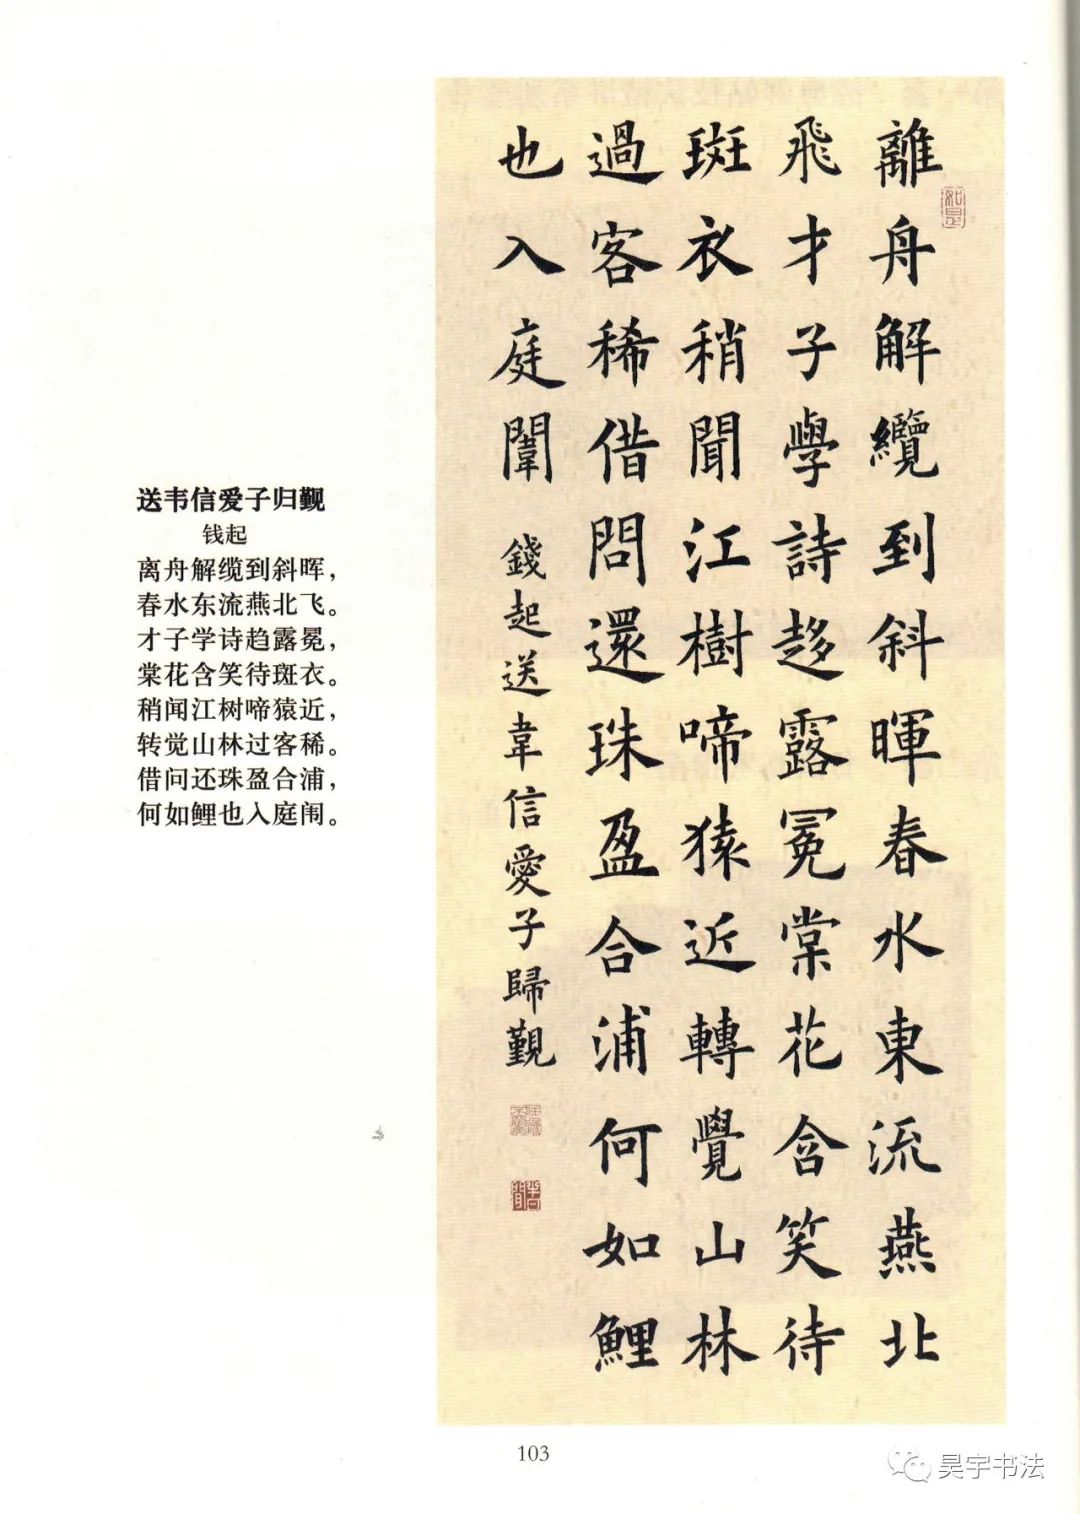 送韦信爱子归觐
钱起
离舟解缆到斜晖，
春水东流燕北飞。
才子学诗趋露冕，
棠花含笑待斑衣。
稍闻江树啼猿近，
转觉山林过客稀。
借问还珠盈合浦，
何如鲤也入庭闱。
離舟解纜到斜暉春水東流燕北
飛才子學詩趍露冕棠花含笑待
斑衣稍聞江樹啼猿近轉覺山林
過客稀借問還珠盈合浦何如鯉
也入庭闈 錢起送韋信愛子歸覲
如是
103
昊宇书法